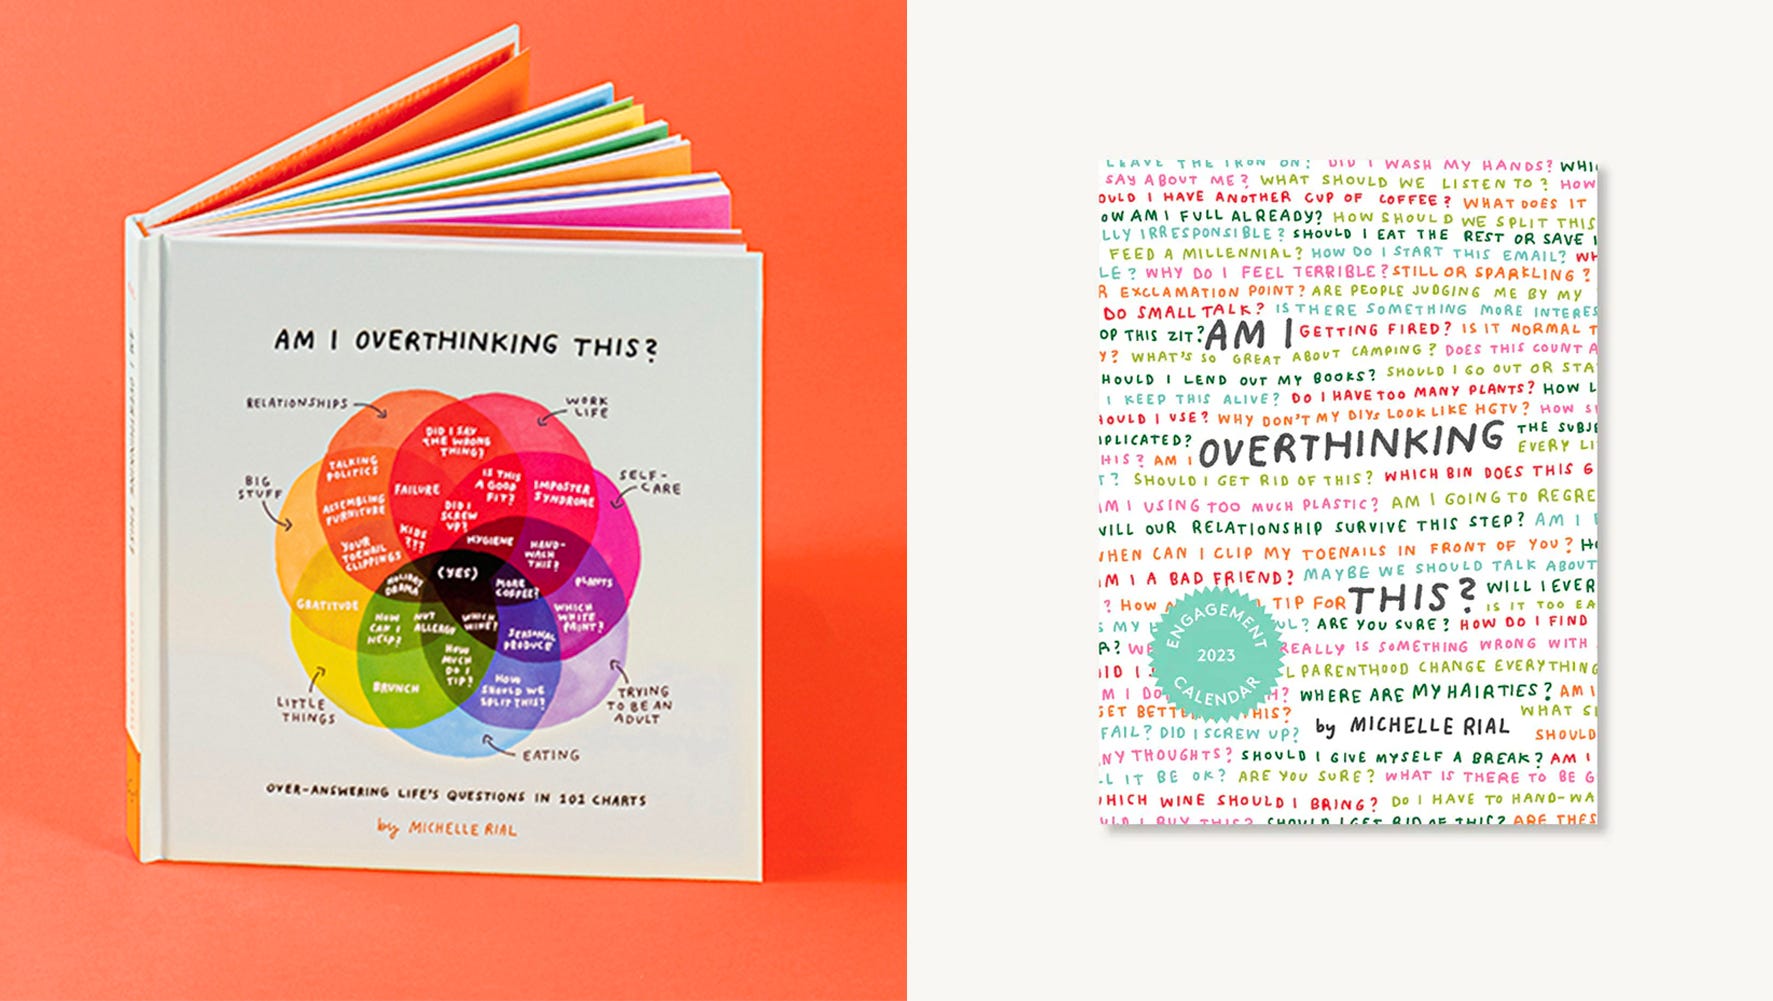 AM I OVERTHINKING THIS?
RELATIONSHIPS
WORK
LIFE
BIG
STUFF
SELF-
CARE
DID I SAY
THE WRONG
THING?
TALKING
POLITICS
IS THIS
A GOOD
FIT?
FAILURE
IMPOSTER
SYNDROME
ASSEMBLING
FURNITURE
DID I
SCREW
UP?
KIDS
???
YOUR
TOENAIL
CLIPPINGS
HYGIENE
HAND-
WASH
THIS?
(YES)
HOLIDAY
DRAMA
MORE
COFFEE?
PLANTS
GRATITUDE
HOW
CAN I
HELP?
NUT
ALLERGY
WHICH
WINE?
WHICH
WHITE
PAINT?
SEASONAL
PRODUCE
HOW
MUCH
DO I
TIP?
BRUNCH
HOW
SHOULD WE
SPLIT THIS?
LITTLE
THINGS
TRYING
TO BE AN
ADULT
EATING
OVER-ANSWERING LIFE'S QUESTIONS IN 101 CHARTS
by MICHELLE RIAL
LEAVE THE IRON ON? DID I WASH MY HANDS? WHI
SAY ABOUT ME? WHAT SHOULD WE LISTEN TO? HOW
OULD I HAVE ANOTHER CUP OF COFFEE? WHAT DOES IT
OW AM I FULL ALREADY? HOW SHOULD WE SPLIT THIS
LLY IRRESPONSIBLE? SHOULD I EAT THE REST OR SAVE I
FEED A MILLENNIAL? HOW DO I START THIS EMAIL? WH
LE? WHY DO I FEEL TERRIBLE? STILL OR SPARKLING?
R EXCLAMATION POINT? ARE PEOPLE JUDGING ME BY MY
DO SMALL TALK? IS THERE SOMETHING MORE INTERES
OP THIS ZIT? AM I GETTING FIRED? IS IT NORMAL T
Y? WHAT'S SO GREAT ABOUT CAMPING? DOES THIS COUNT A
HOULD I LEND OUT MY BOOKS? SHOULD I GO OUT OR STA
I KEEP THIS ALIVE? DO I HAVE TOO MANY PLANTS? HOW L
HOULD I USE? WHY DON'T MY DIYs LOOK LIKE HGTV? HOW S
MPLICATED? OVERTHINKING THE SUBJE
HIS? AM I EVERY LI
T? SHOULD I GET RID OF THIS? WHICH BIN DOES THIS G
AM I USING TOO MUCH PLASTIC? AM I GOING TO REGRE
WILL OUR RELATIONSHIP SURVIVE THIS STEP? AM I
WHEN CAN I CLIP MY TOENAILS IN FRONT OF YOU? HO
AM I A BAD FRIEND? MAYBE WE SHOULD TALK ABOUT
THIS? WILL I EVER
? HOW TIP FOR IS IT TOO EA
S MY UL? ARE YOU SURE? HOW DO I FIND
ENGAGEMENT
2023
CALENDAR
R? WE REALLY IS SOMETHING WRONG WITH
DID I L PARENTHOOD CHANGE EVERYTHING
M I DO H? WHERE ARE MY HAIRTIES? AM I
GET BETTE THIS? WHAT S
by MICHELLE RIAL
FAIL? DID I SCREW UP? SHOULD
NY THOUGHTS? SHOULD I GIVE MYSELF A BREAK? AM I
LL IT BE OK? ARE YOU SURE? WHAT IS THERE TO BE G
WHICH WINE SHOULD I BRING? DO I HAVE TO HAND-WA
ULD I BUY THIS? SHOULD I GET RID OF THIS? ARE THES